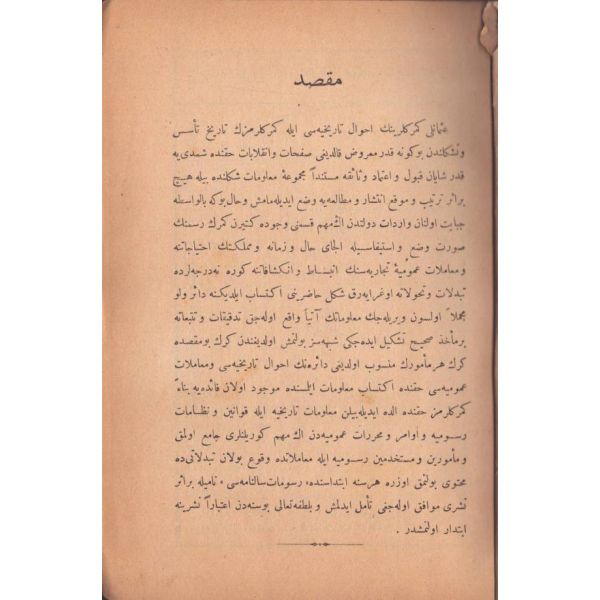 مقصد
عثمانلی كمركلرینك احوال تاریخیه‌سی ایله كمركلرمزك تاریخ تأسس
وتشكلندن بوكونه قدر معروض قالدیغی صفحات وانقلابات حقنده شمدی‌یه
قدر شایان قبول و اعتماد وثائقه مستنداً مجموعهٔ معلومات شكلنده بیله هیچ
براثر ترتیب و موقع انتشار و مطالعه‌یه وضع ایدیله‌مامش وحال بوكه بالواسطه
جبایت اولنان واردات دولتدن اك مهم قسمنی وجوده كتیرن كمرك رسمنك
صورت وضع و استیفاسیله الجای حال و زمانه و مملكتك احتیاجاتنه
ومعاملات عمومیهٔ تجاریه‌سنك انبساط و انكشافاتنه كوره نه‌درجه‌لرده
تبدلات وتحولاته اوغرایه‌رق شكل حاضرینی اكتساب ایلدیكنه دائر ولو
مجملاً اولسون ویریله‌جك معلوماتك آتیاً واقع اوله‌جق تدقیقات وتتبعاته
برمأخذ صحیح تشكیل ایده‌جكی شبهه‌سز بولنمش اولدیغندن كرك بومقصده
كرك هرمأمورك منسوب اولدیغی دائره‌نك احوال تاریخیه‌سی ومعاملات
عمومیه‌سی حقنده اكتساب معلومات ایلسنده موجود اولان فائده‌یه بناءً
كمركلرمز حقنده الده ایدیله‌بیلن معلومات تاریخیه ایله قوانین و نظامات
رسومیه و اوامر و محررات عمومیه‌دن اك مهم كوریلنلری جامع اولمق
ومأمورین و مستخدمین رسومیه ایله معاملاتده وقوع بولان تبدلاتی‌ده
محتوی بولنمق اوزره هرسنه ابتداسنده، رسومات سالنامه‌سی، نامیله براثر
نشری موافق اوله‌جغی تأمل ایدلمش و بلطفه‌تعالی بوسنه‌دن اعتباراً نشرینه
ابتدار اولنمشدر .